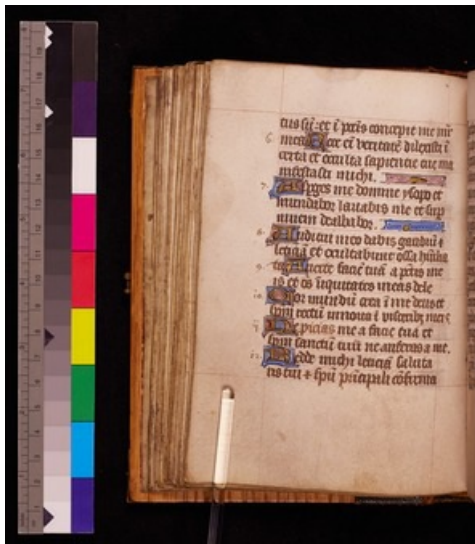 tus sū: et ī pctīs concepit me mr̄
mea. Ecce eī veritatē dilexisti ī
certa et occulta sapientie tue ma
nifestasti michi.
Asperges me domine ysopo et
mundabor lavabis me et sup
nivem dealbabor.
Auditui meo dabis gaudiū &
leticiā et exultabunt ossa hūilia
Averte faciē tuā a pctīs me
is et oēs iniquitates meas dele
Cor mūdū crea ī me deus et
spm̄ rectū innova ī visceribus meis
Ne proicias me a facie tua et
spm̄ sanctū tuū ne auferas a me.
Redde michi leticiā saluta
ris tui & spū principali cōfirma